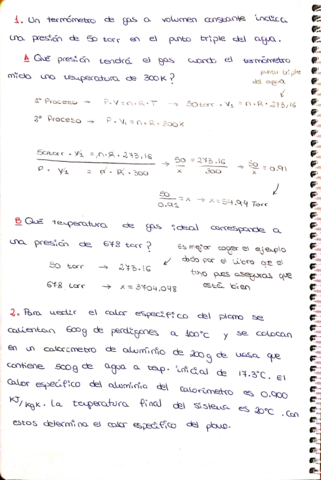 1. Un termómetro de gas a volumen constante indica
una presión de 50 torr en el punto triple del agua.
A Qué presión tendrá el gas cuando el termómetro
mida una temperatura de 300K?
punto triple
del agua
1º Proceso → P·V=n·R·T → 50torr·V₁=n·R·273,16
2º Proceso → P·V₁=n·R·300K
50torr·V₁ = n·R·273.16
P · V₁ = n·R·300
→ 50/x = 273.16/300 → 50/x = 0.91
50/0.91 = x → x=54.94 Torr
B Qué temperatura de gas ideal corresponde a
una presión de 678 torr?
Es mejor coger el ejemplo
dado por el libro que el
tuyo pues aseguras que
está bien
50 torr → 273.16
678 torr → x=3704.048
2. Para medir el calor específico del plomo se
calientan 600g de perdigones a 100°C y se colocan
en un calorímetro de aluminio de 200g de masa que
contiene 500g de agua a temp. inicial de 17.3°C. El
calor específico del aluminio del calorímetro es 0.900
KJ/kgK. La temperatura final del sistema es 20°C. Con
estos determina el calor específico del plomo.